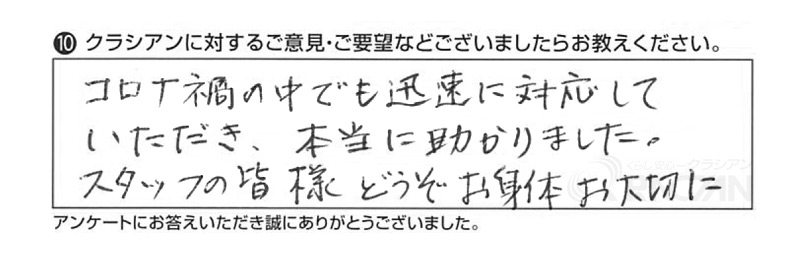 ❿ クラシアンに対するご意見・ご要望などございましたらお教えください。
コロナ禍の中でも迅速に対応して
いただき、本当に助かりました。
スタッフの皆様どうぞお身体お大切に
アンケートにお答えいただき誠にありがとうございました。